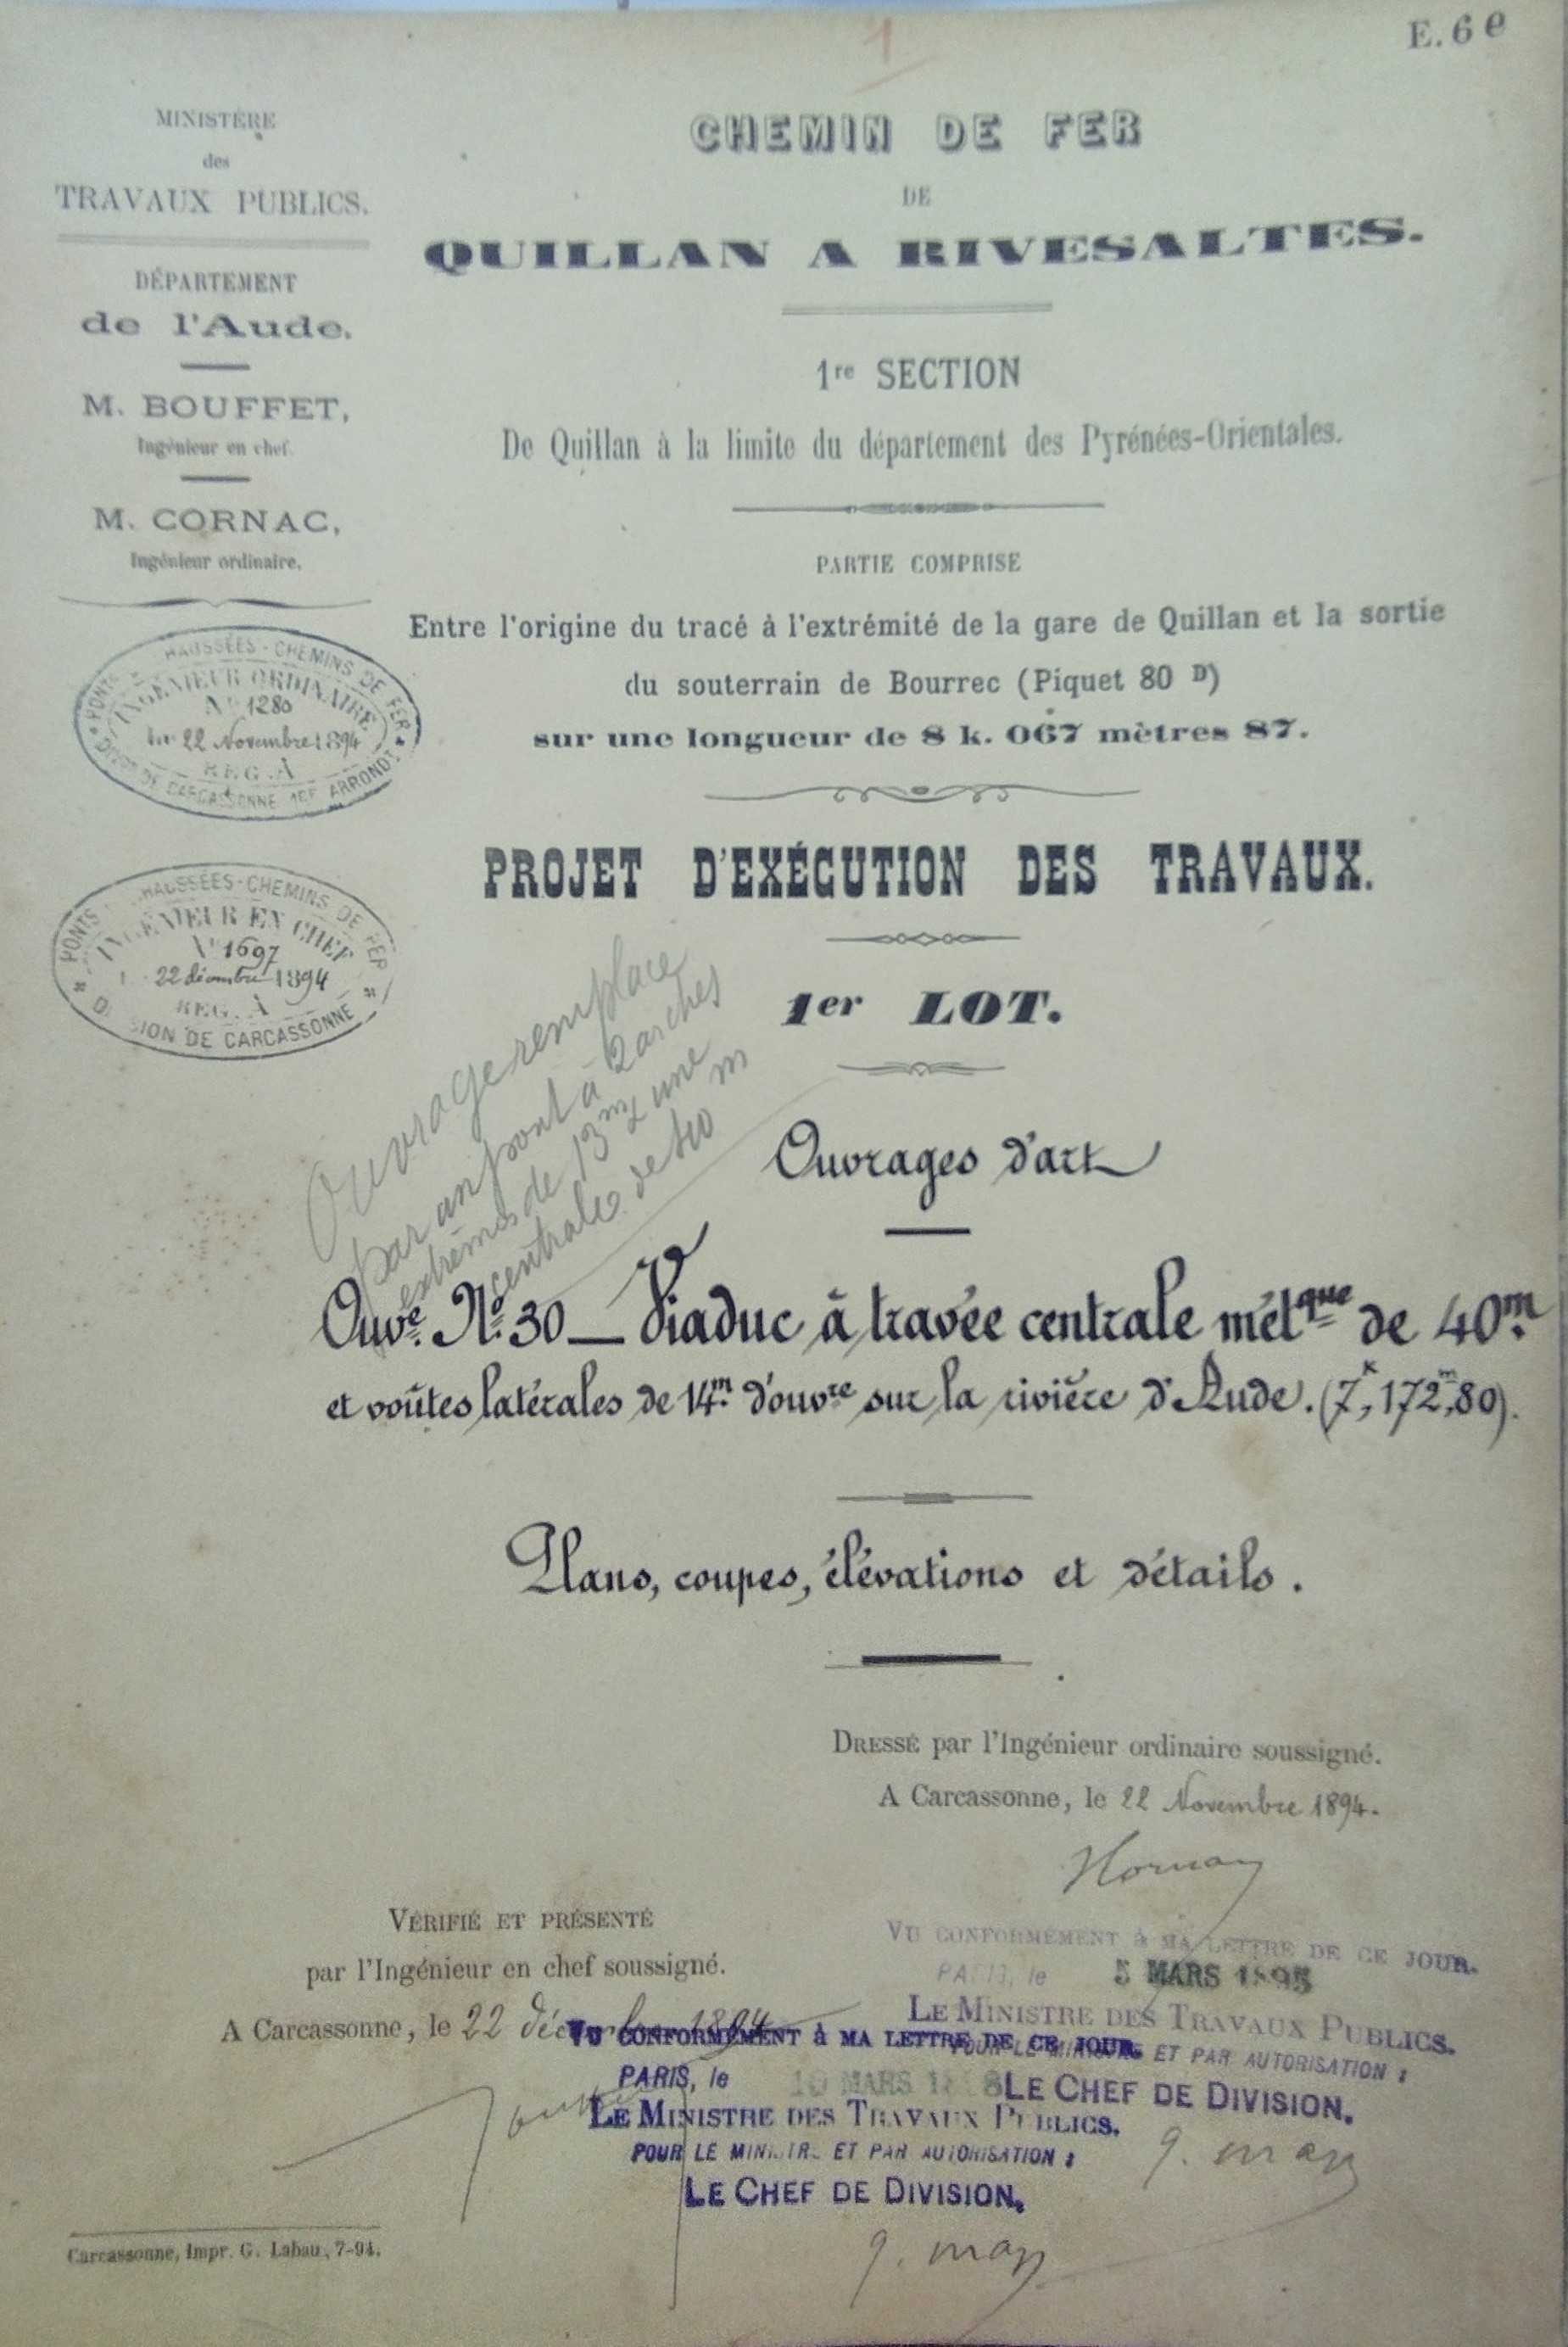 E. 6 e
1
MINISTÈRE
des
TRAVAUX PUBLICS.
DÉPARTEMENT
de l'Aude.
M. BOUFFET,
Ingénieur en chef.
M. CORNAC,
Ingénieur ordinaire.
PONTS HAUSSÉES-CHEMINS DE FER
INGÉNIEUR ORDINAIRE
N° 1280
22 Novembre 1894
REG. A
DE CARCASSONNE 1ER ARRONDT
PONTS HAUSSÉES-CHEMINS DE FER
INGÉNIEUR EN CHEF
N° 1697
22 décembre 1894
REG. A
DIVISION DE CARCASSONNE
CHEMIN DE FER
DE
QUILLAN A RIVESALTES.
1re SECTION
De Quillan à la limite du département des Pyrénées-Orientales.
PARTIE COMPRISE
Entre l'origine du tracé à l'extrémité de la gare de Quillan et la sortie
du souterrain de Bourrec (Piquet 80 D)
sur une longueur de 8 k. 067 mètres 87.
PROJET D'EXÉCUTION DES TRAVAUX.
1er LOT.
Ouvrage remplacé
par un pont à 2 arches
extrêmes de 13m & une
centrale de 40 m
Ouvrages d'art
Ouve. No. 30 — Viaduc à travée centrale métque de 40m.
et voûtes latérales de 14m. d'ouvre sur la rivière d'Aude. (7k,172m,80).
Plans, coupes, élévations et détails.
DRESSÉ par l'Ingénieur ordinaire soussigné.
A Carcassonne, le 22 Novembre 1894.
VÉRIFIÉ ET PRÉSENTÉ
par l'Ingénieur en chef soussigné.
A Carcassonne, le 22 décembre 1894
VU CONFORMÉMENT à MA LETTRE DE CE JOUR.
PARIS, le 5 MARS 1895
LE MINISTRE DES TRAVAUX PUBLICS.
POUR LE MINISTRE ET PAR AUTORISATION :
LE CHEF DE DIVISION.
VU CONFORMÉMENT à MA LETTRE DE CE JOUR.
PARIS, le 10 MARS
LE MINISTRE DES TRAVAUX PUBLICS.
POUR LE MINISTRE ET PAR AUTORISATION :
LE CHEF DE DIVISION.
Carcassonne, Impr. G. Labau, 7-94.